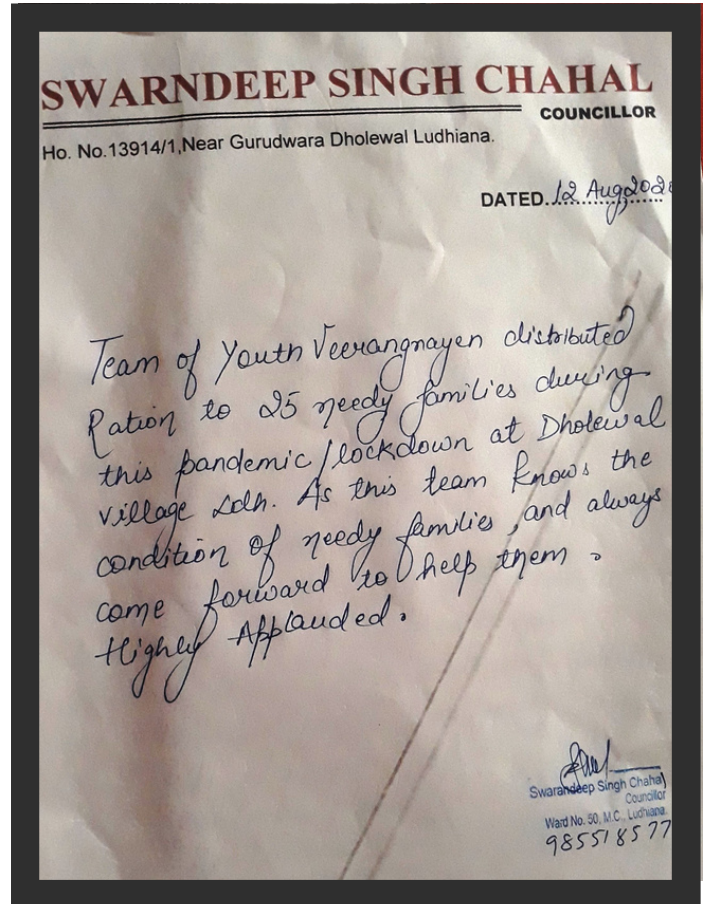 SWARNDEEP SINGH CHAHAL
COUNCILLOR
Ho. No.13914/1,Near Gurudwara Dholewal Ludhiana.
DATED. 12 Aug,202
Team of Youth Veerangnayen distributed
Ration to 25 needy families during
this pandemic/lockdown at Dholewal
village Ldh. As this team knows the
condition of needy families, and always
come forward to help them.
Highly Applauded.
Swarandeep Singh Chahal
Councillor
Ward No. 50, M.C., Ludhiana.
985518577